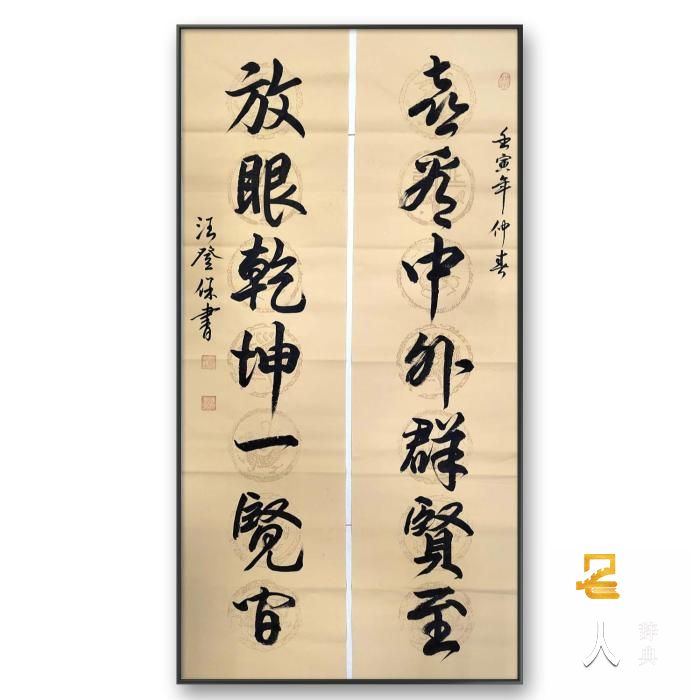 壬寅年仲春
喜看中外群賢至
放眼乾坤一覽間
汪登保書
名
人
辞典